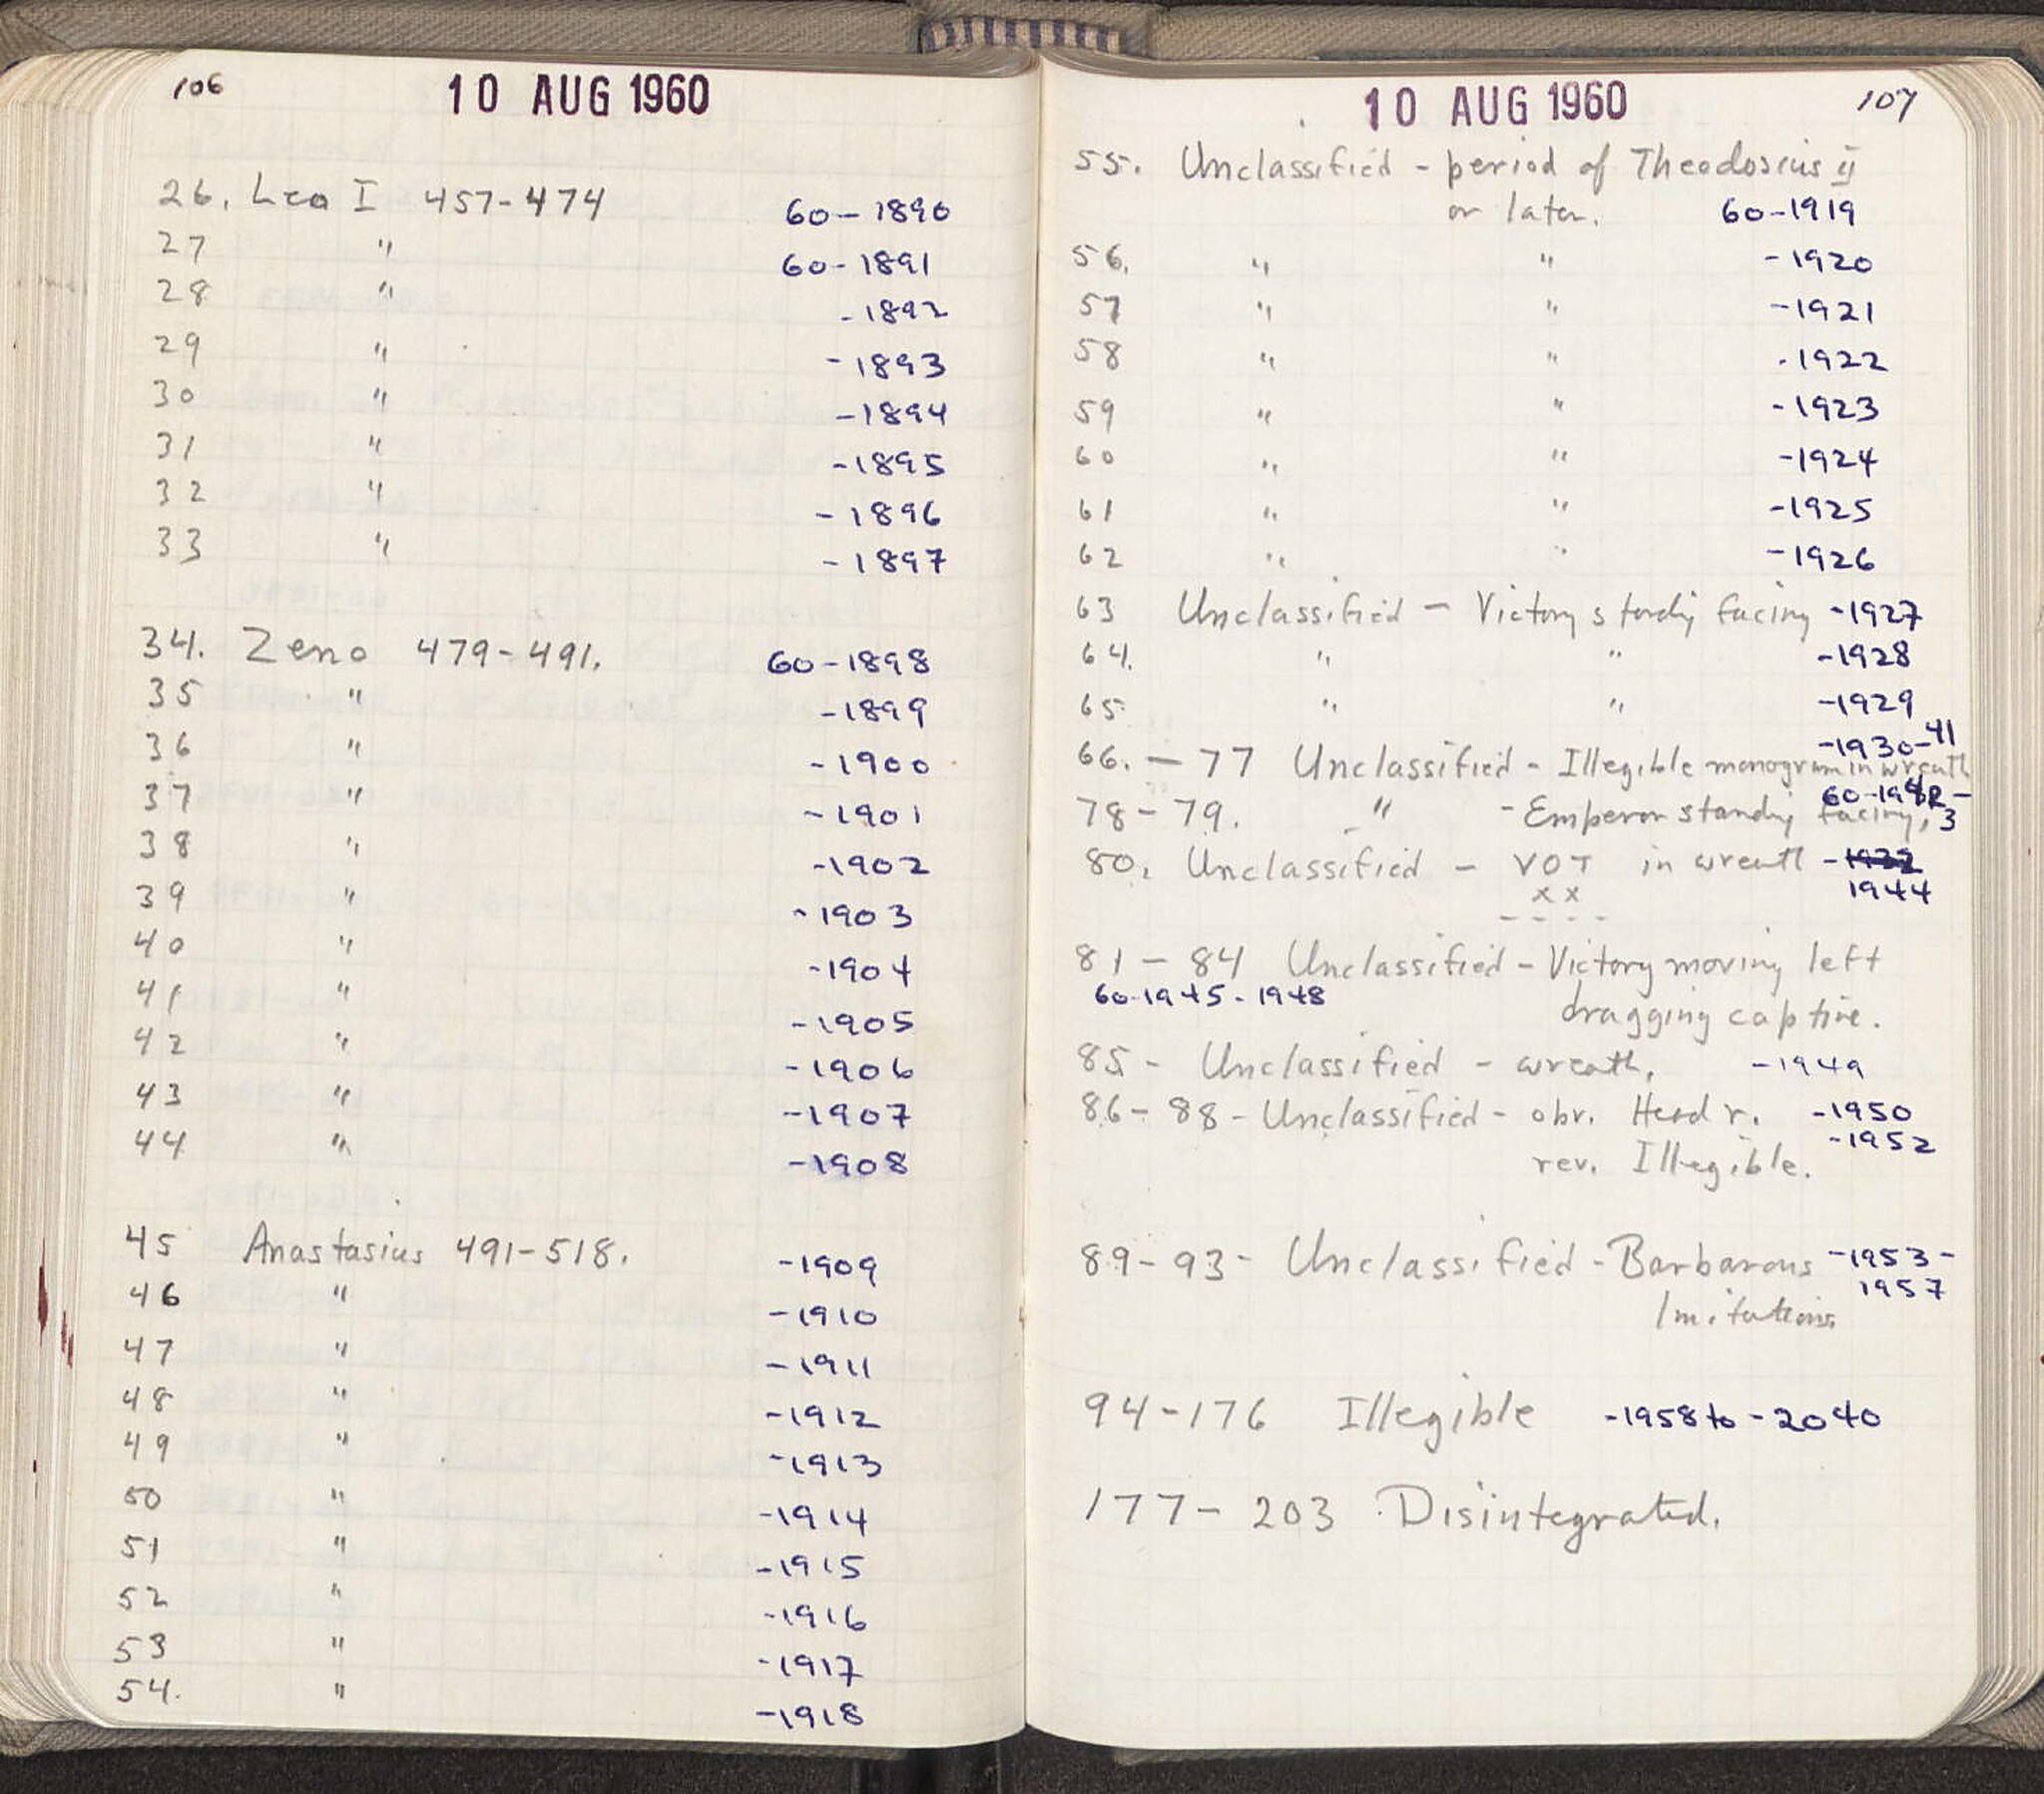 106
10 AUG 1960
26. Leo I 457-474 60-1890
27 " 60-1891
28 " -1892
29 " -1893
30 " -1894
31 " -1895
32 " -1896
33 " -1897
34. Zeno 479-491. 60-1898
35 " -1899
36 " -1900
37 " -1901
38 " -1902
39 " -1903
40 " -1904
41 " -1905
42 " -1906
43 " -1907
44 " -1908
45 Anastasius 491-518. -1909
46 " -1910
47 " -1911
48 " -1912
49 " -1913
50 " -1914
51 " -1915
52 " -1916
53 " -1917
54. " -1918
10 AUG 1960
107
55. Unclassified - period of Theodosius II
or later. 60-1919
56. " " -1920
57 " " -1921
58 " " -1922
59 " " -1923
60 " " -1924
61 " " -1925
62 " " -1926
63 Unclassified - Victory standing facing -1927
64. " " -1928
65 " " -1929
-1930-41
66. - 77 Unclassified - Illegible monogram in wreath
60-1942-
78-79. " - Emperor standing facing, 3
80. Unclassified - VOT in wreath -1932
XX 1944
- - - -
81 - 84 Unclassified - Victory moving left
60-1945-1948 dragging captive.
85 - Unclassified - wreath. -1949
86-88- Unclassified - obv. Head r. -1950
-1952
rev. Illegible.
89-93- Unclassified - Barbarous -1953-
1957
Imitations
94-176 Illegible -1958 to -2040
177- 203 Disintegrated.